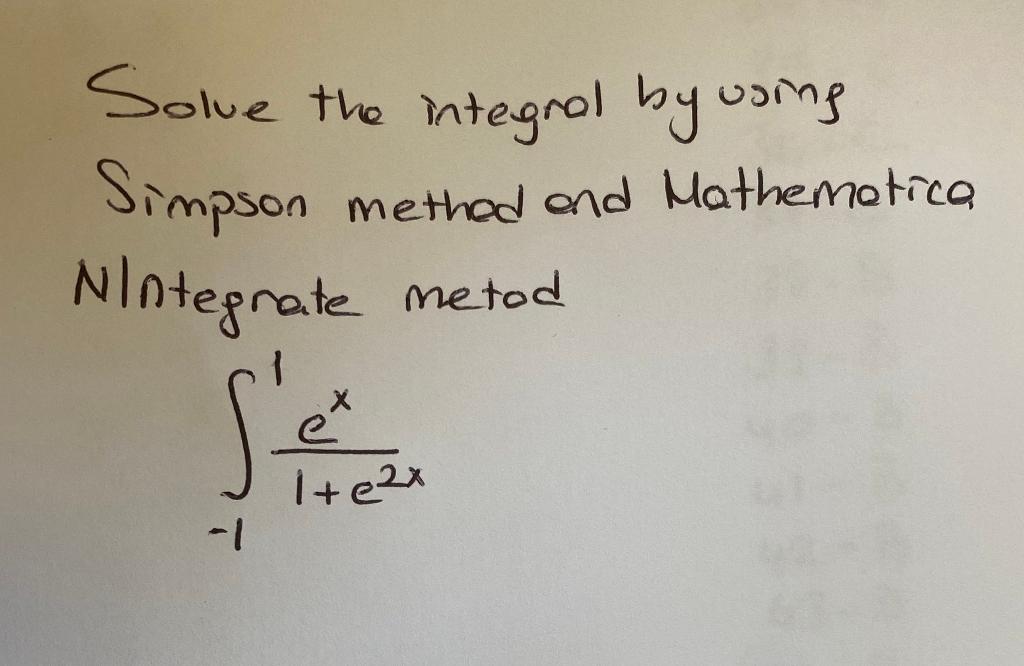 Solve the integral by using
Simpson method and Mathematica
NIntegrate metod
∫₋₁¹ eˣ / (1+e²ˣ)